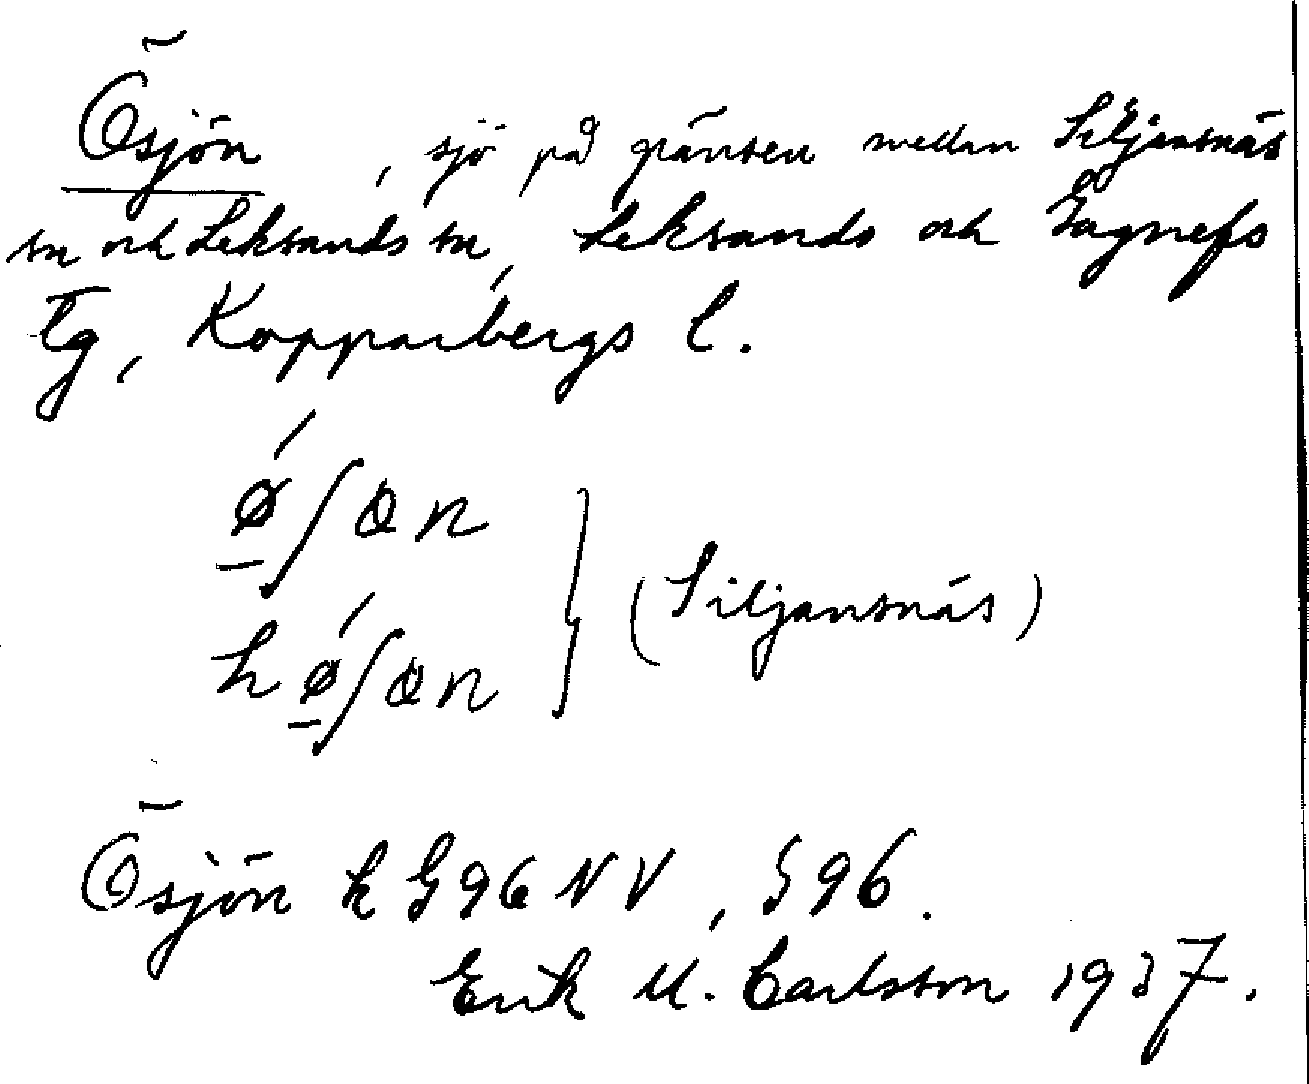 Ösjön, sjö på gränsen mellan Siljansnäs
sn och Leksands sn, Leksands och Gagnefs
tg, Kopparbergs l.
ǿ̠ʃɷn
hǿ̠ʃɷn } (Siljansnäs)
Ösjön k G96NV, S96.
Erik M. Carlsson 1937.